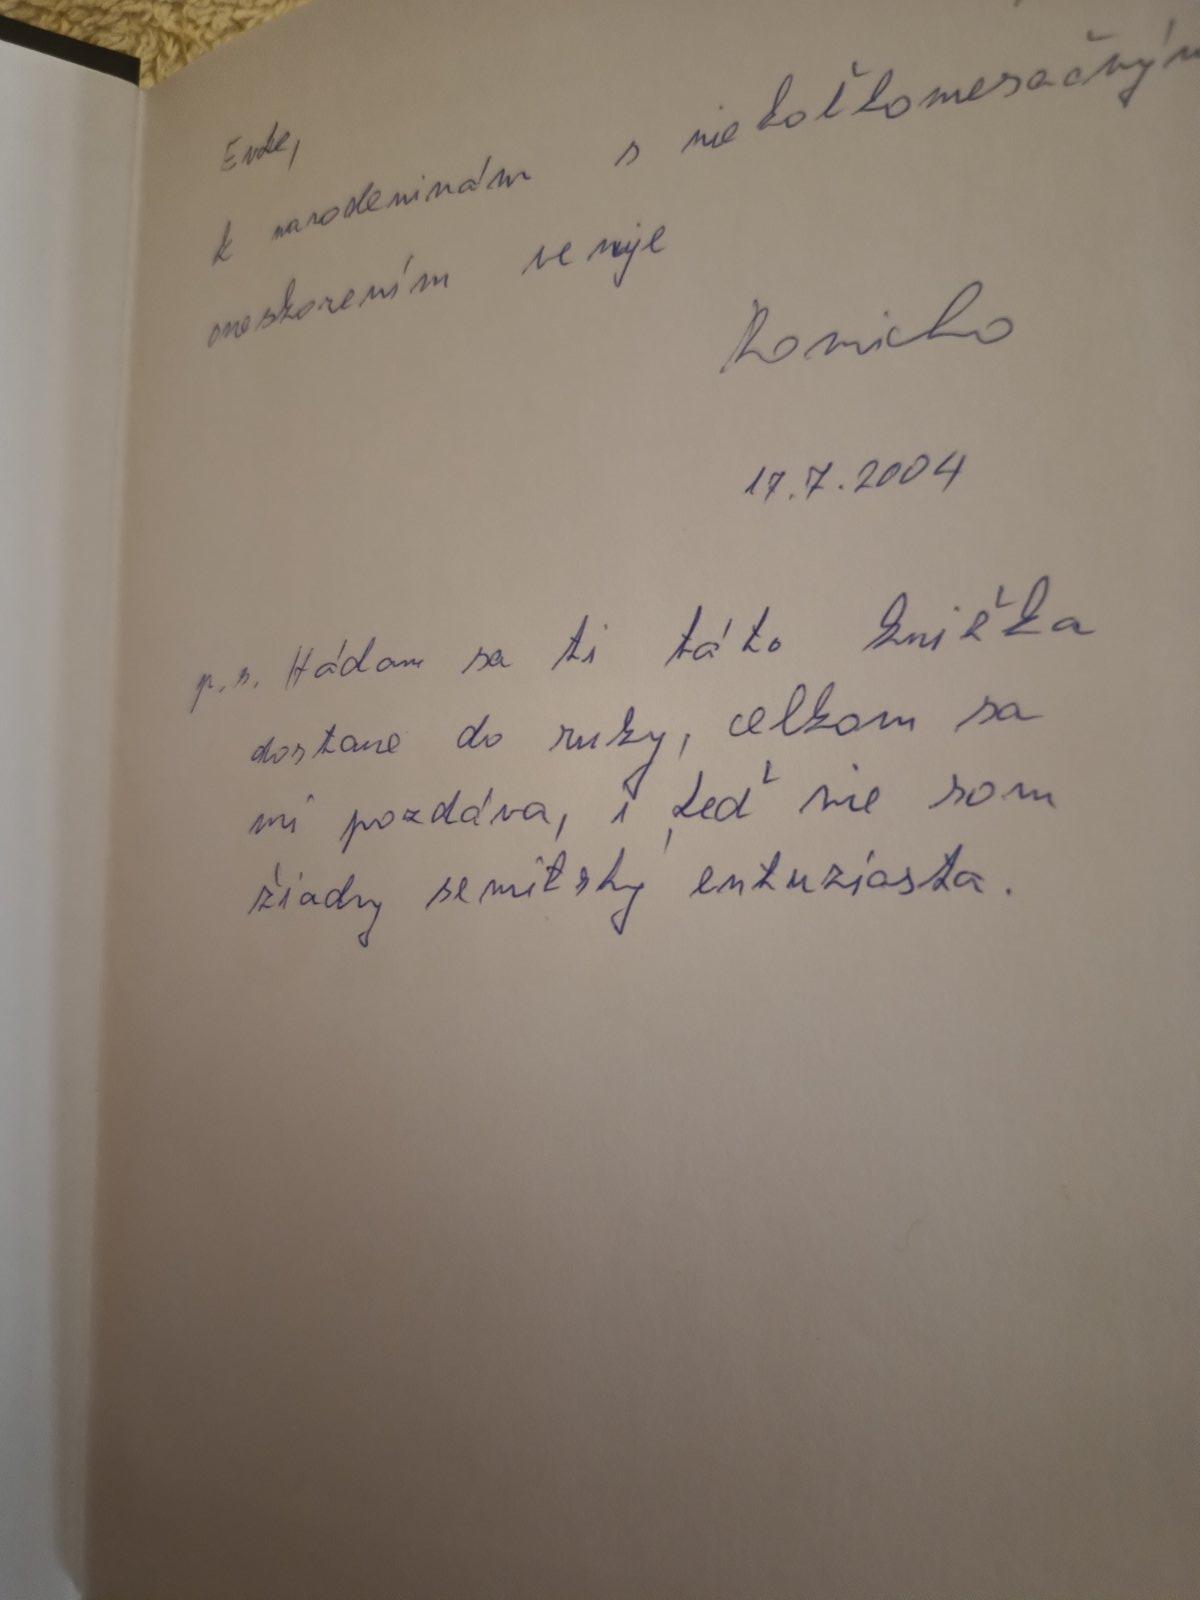 Evke,
k narodeninám s niekoľkomesačným
oneskorením venuje
Romicho
17.7.2004
p.s. Hádam sa ti táto knižka
dostane do ruky, celkom sa
mi pozdáva, i keď nie som
žiadny semitský entuziasta.